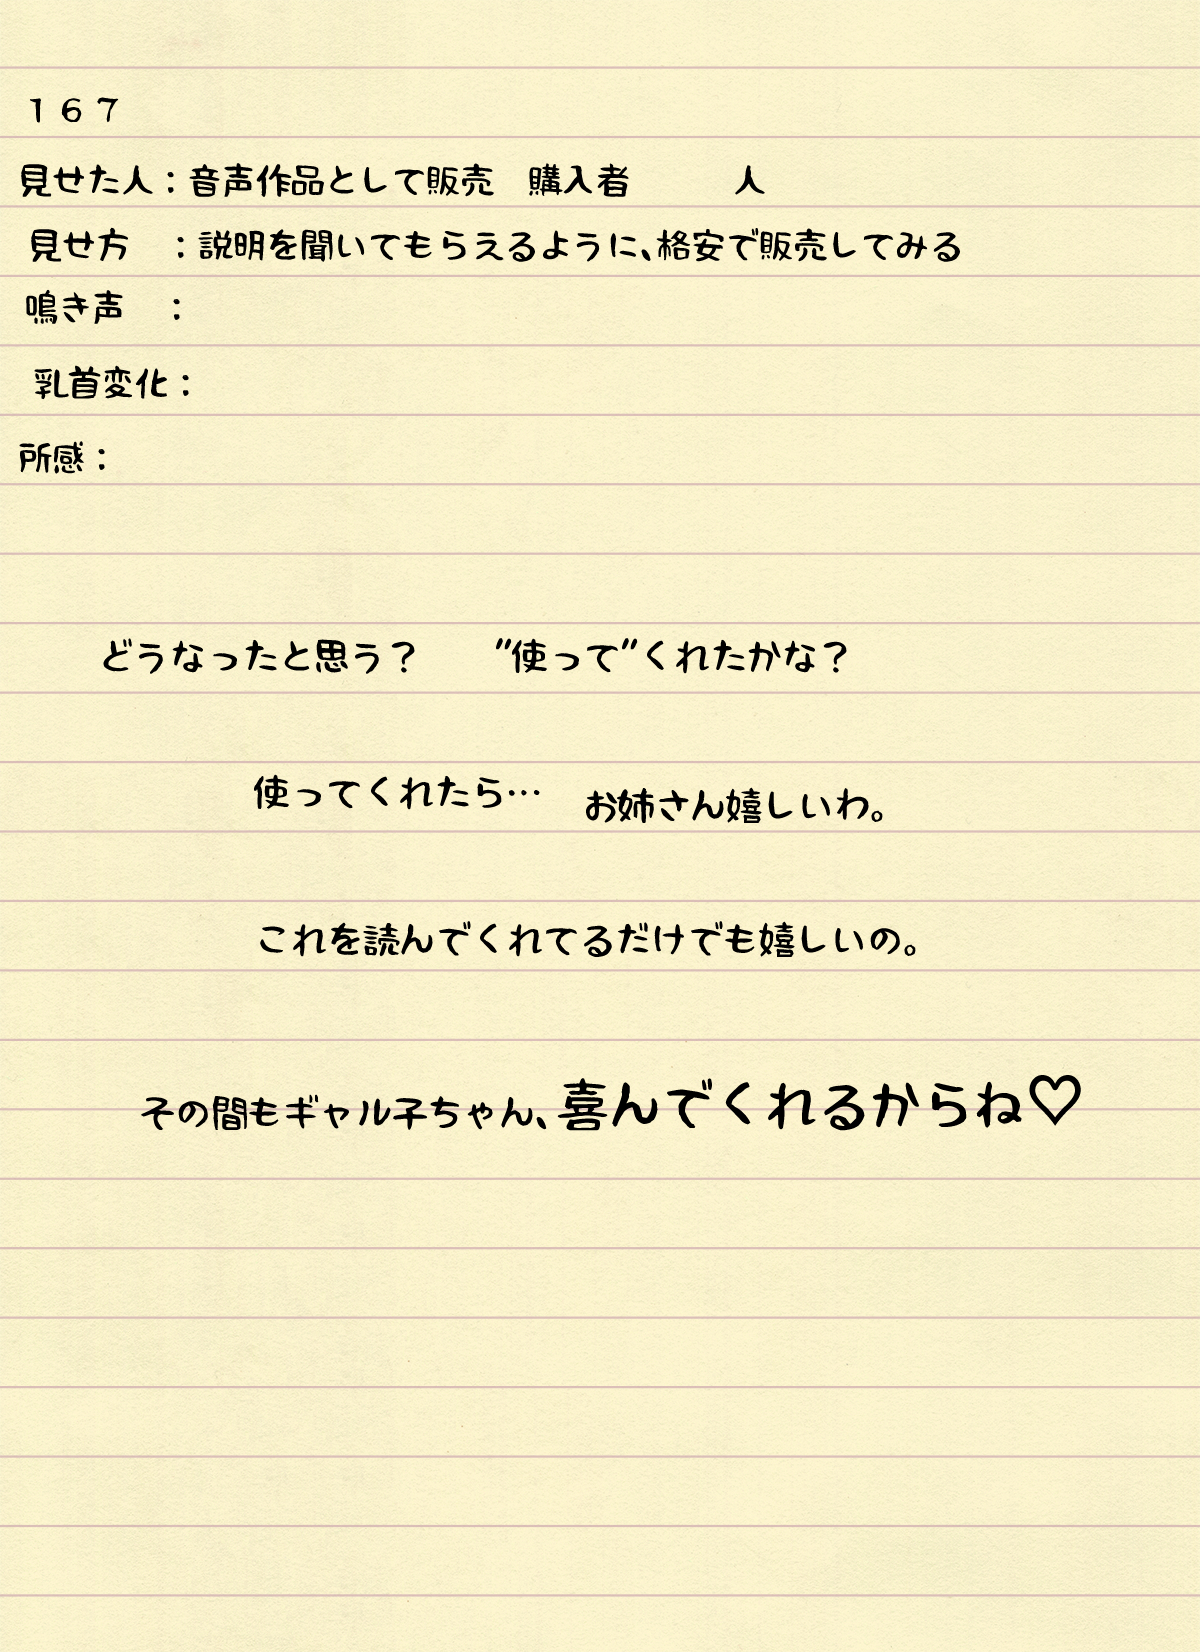 １６７
見せた人：音声作品として販売　購入者　　　人
見せ方　：説明を聞いてもらえるように、格安で販売してみる
鳴き声　：
乳首変化：
所感：
どうなったと思う？　　”使って”くれたかな？
使ってくれたら…　お姉さん嬉しいわ。
これを読んでくれてるだけでも嬉しいの。
その間もギャル子ちゃん、喜んでくれるからね♡